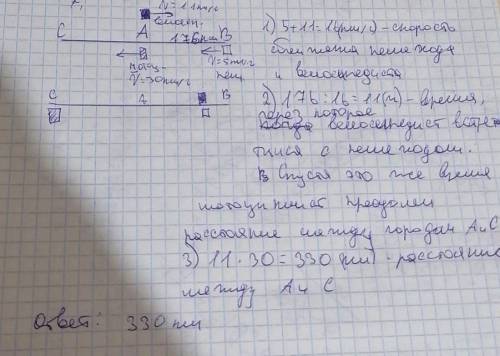 V=11км/ч
C A B
176км
V=5км/ч
V=30км/ч
C A B
1) 5+11=16(км/ч) - скорость
сближения пешехода
и велосипедиста
2) 176:16=11(ч) - время,
через которое
велосипедист встре
тися с пешеходом.
Спустя это же время
мотоциклист преодолел
расстояние между городам А и С
3) 11·30=330 (км) - расстояние
между А и С
Ответ: 330 км